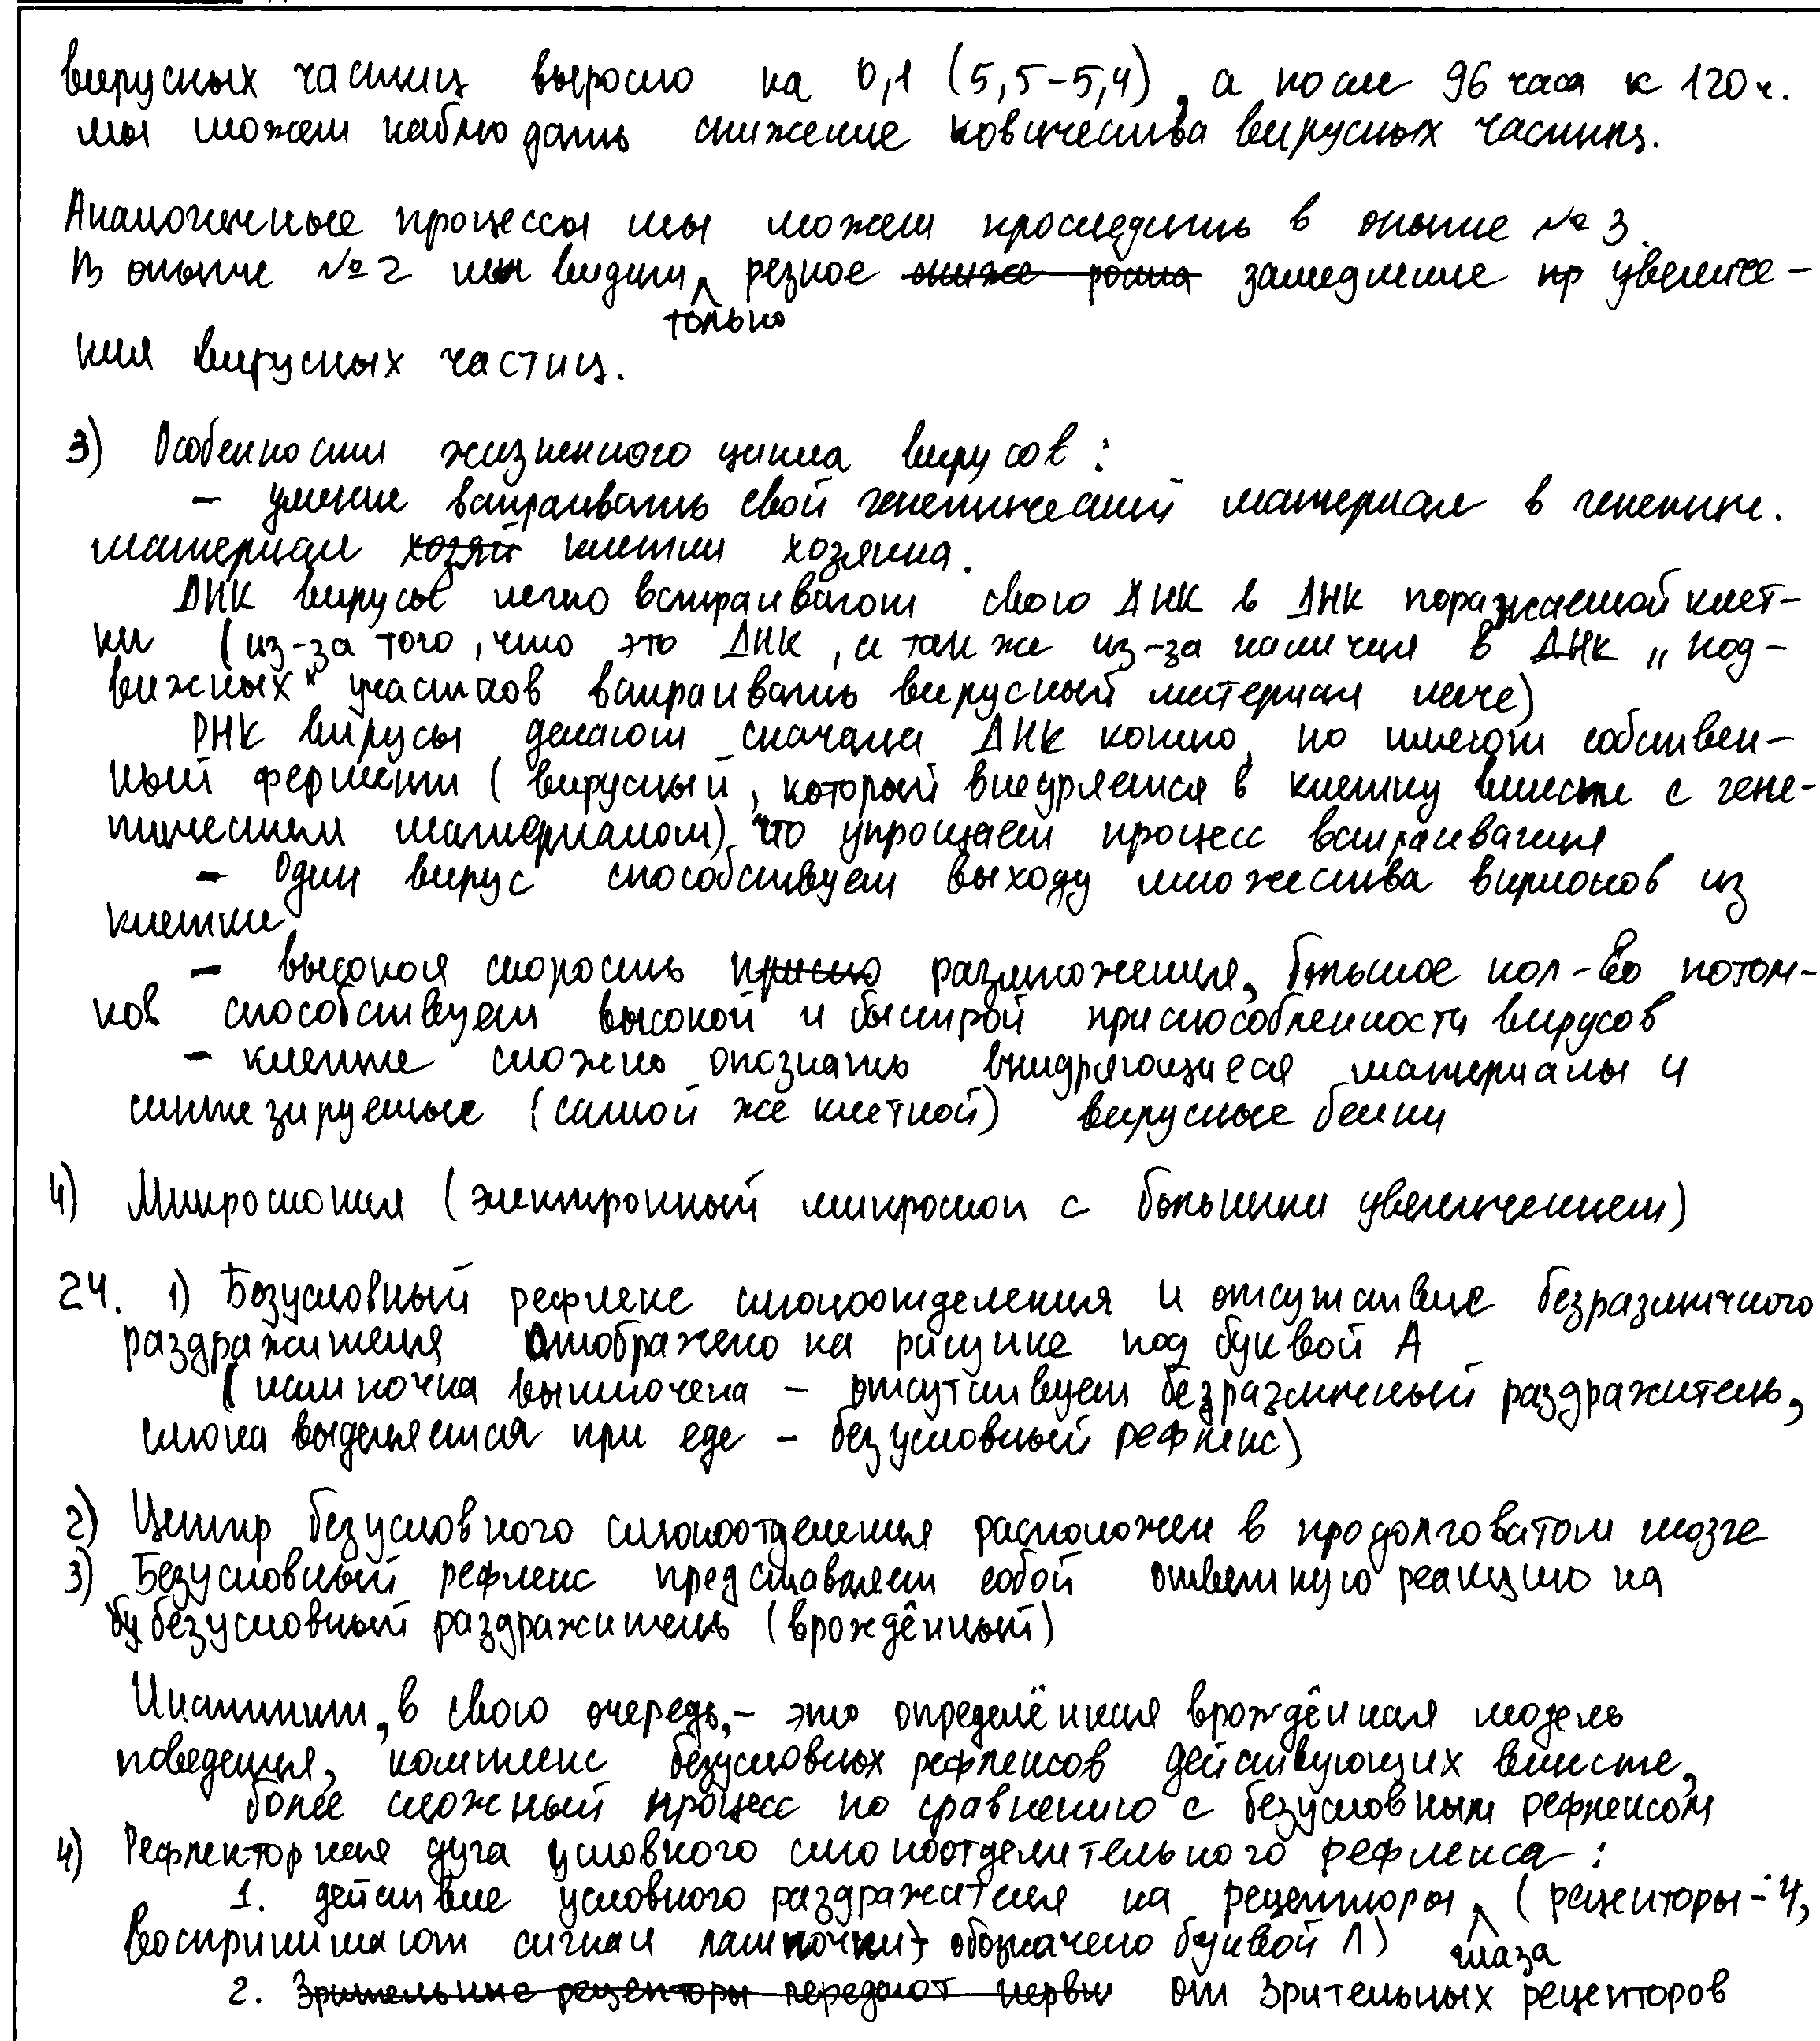 вирусных частиц выросло на 0,1 (5,5-5,4), а после 96 часа к 120 ч.
мы можем наблюдать снижение количества вирусных частиц.
Аналогичные процессы мы можем проследить в опыте № 3.
В опыте № 2 мы видим только резкое ниже роста замедление пр увеличе-
ния вирусных частиц.
3) Особенности жизненного цикла вирусов:
- умение встраивать свой генетический материал в генетич.
материал хозяй клетки хозяина.
ДНК вирусы легко встраивают свою ДНК в ДНК поражаемой клет-
ки (из-за того, что это ДНК, а так же из-за наличия в ДНК „под-
вижных" участков встраивать вирусный материал легче)
РНК вирусы делают сначала ДНК копию, но имеют собствен-
ный фермент (вирусный, который внедряется в клетку вместе с гене-
тическим материалом) что упрощает процесс встраивания
- один вирус способствует выходу множества вирионов из
клетки
- высокая скорость приспо размножения, большое кол-во потом-
ков способствует высокой и быстрой приспособленности вирусов
- клетке сложно опознать внидряющиеся материалы и
синтезируемые (самой же клеткой) вирусные белки
4) Микроскопия (электронный микроскоп с большим увеличением)
24. 1) Безусловный рефлекс слюноотделения и отсутствие безразличного
раздражителя отображено на рисунке под буквой А
(лампочка выключена - отсутствует безразличный раздражитель,
слюна выделяется при еде - безусловный рефлекс)
2) Центр безусловного слюноотделения расположен в продолговатом мозге
3) Безусловный рефлекс представляет собой ответную реакцию на
бу безусловный раздражитель (врождённый)
Инстинкт, в свою очередь, - это определённая врождённая модель
поведения, комплекс безусловных рефлексов действующих вместе,
более сложный процесс по сравнению с безусловным рефлексом
4) Рефлекторная дуга условного слюноотделительного рефлекса:
1. действие условного раздражителя на рецепторы глаза (рецепторы - 4,
воспринимают сигнал лампочки - обозначено буквой Л)
2. Зрительные рецепторы передают нервн от зрительных рецепторов